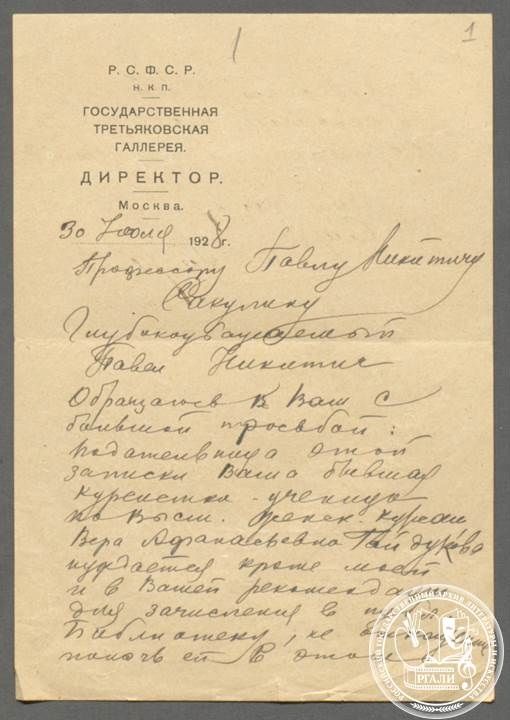 1
Р. С. Ф. С. Р.
Н. К. П.
ГОСУДАРСТВЕННАЯ
ТРЕТЬЯКОВСКАЯ
ГАЛЛЕРЕЯ.
ДИРЕКТОР.
Москва.
30 Июля 1928 г.
Профессору Павлу Никитичу
Сакулину
Глубокоуважаемый
Павел Никитич
Обращаюсь к Вам с
большой просьбой:
подательница этой
записки Ваша бывшая
курсистка - ученица
по Высш. Женск. курсам
Вера Афанасьевна Гайдукова
нуждается кроме моей
и в Вашей рекомендации
для зачисления в
Библиотеку, не
помочь ей в этом
РОССИЙСКИЙ ГОСУДАРСТВЕННЫЙ АРХИВ ЛИТЕРАТУРЫ И ИСКУССТВА
РГАЛИ